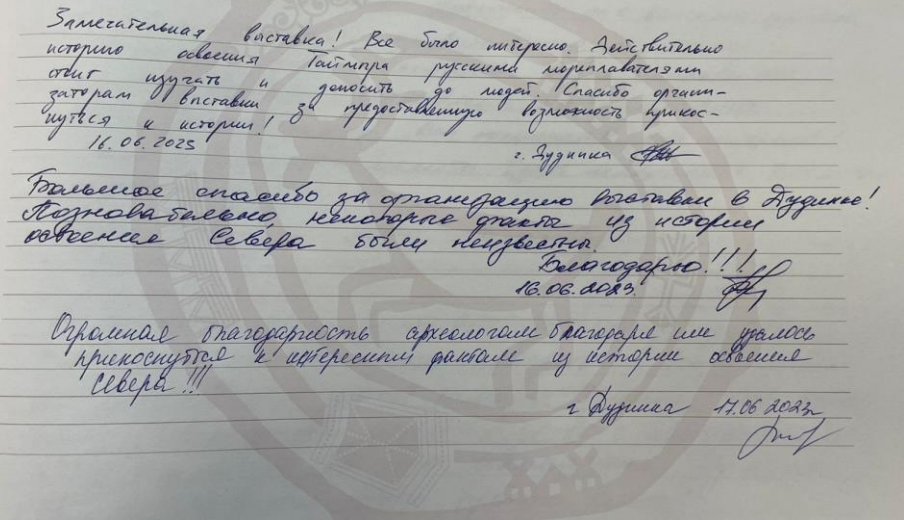 Замечательная выставка! Все было интересно. Действительно
историю освоения Таймыра русскими мореплавателями
стоит изучать и доносить до людей. Спасибо органи-
заторам выставки за предоставленную возможность прикос-
нуться к истории!
16.06.2023 г. Дудинка
Большое спасибо за организацию выставки в Дудинке!
Познавательно, некоторые факты из истории
освоения Севера были неизвестны.
Благодарю!!!
16.06.2023.
Огромная благодарность археологам благодаря им удалось
прикоснуться к интересным фактам из истории освоения
Севера!!!
г Дудинка 17.06 2023г